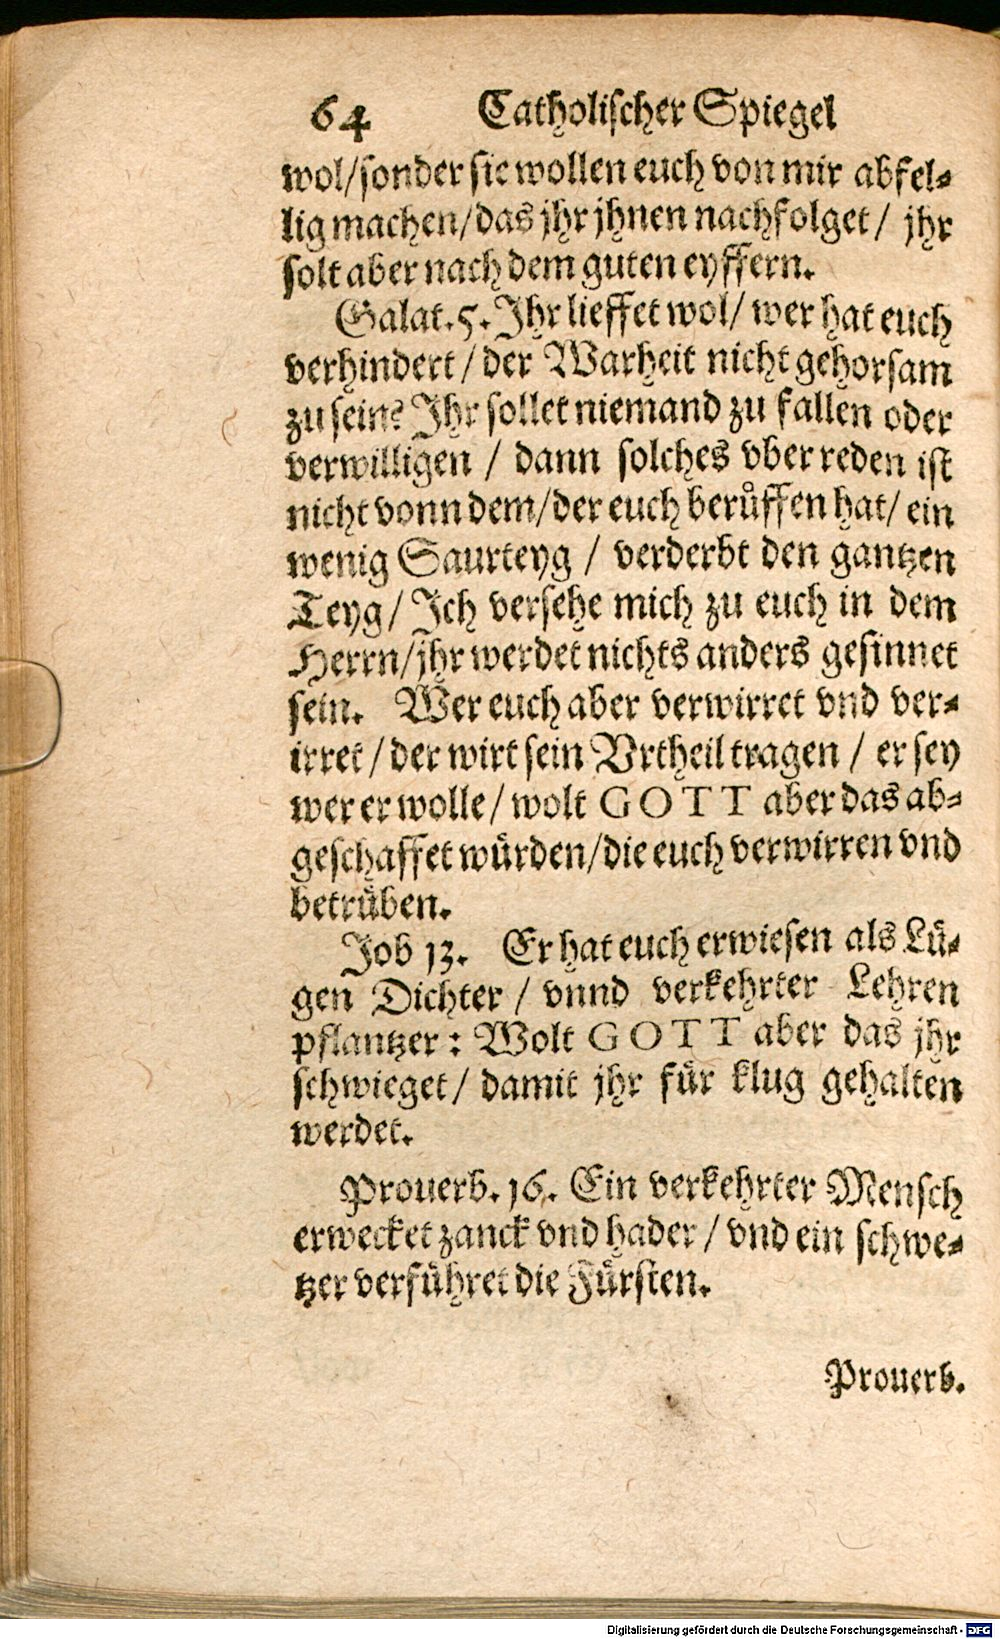 64 Catholischer Spiegel
wol/sonder sie wollen euch von mir abfel-
lig machen/das jhr jhnen nachfolget/ jhr
solt aber nach dem guten eyffern.
Galat.5. Ihr lieffet wol/ wer hat euch
verhindert/der Warheit nicht gehorsam
zu sein? Ihr sollet niemand zu fallen oder
verwilligen / dann solches vberreden ist
nicht vonn dem/der euch berůffen hat/ ein
wenig Saurteyg / verderbt den gantzen
Teyg/ Ich versehe mich zu euch in dem
Herrn/jhr werdet nichts anders gesinnet
sein. Wer euch aber verwirret vnd ver-
irret/der wirt sein Vrtheil tragen / er sey
wer er wolle/ wolt GOTT aber das ab-
geschaffet würden/die euch verwirren vnd
betrüben.
Job 13. Er hat euch erwiesen als Lü-
gen Dichter / vnnd verkehrter Lehren
pflantzer: Wolt GOTT aber das jhr
schwieget/ damit jhr für klug gehalten
werdet.
Prouerb. 16. Ein verkehrter Mensch
erwecket zanck vnd hader / vnd ein schwe-
tzer verführet die Fürsten.
Prouerb.
Digitalisierung gefördert durch die Deutsche Forschungsgemeinschaft - DFG